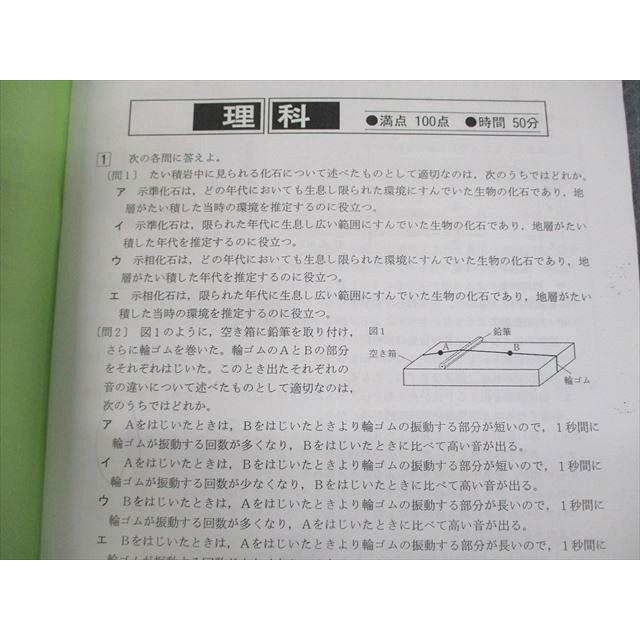 理科 ●満点 100点 ●時間 50分
1 次の各問に答えよ。
〔問1〕 たい積岩中に見られる化石について述べたものとして適切なのは，次のうちではどれか。
ア 示準化石は，どの年代においても生息し限られた環境にすんでいた生物の化石であり，地
層がたい積した当時の環境を推定するのに役立つ。
イ 示準化石は，限られた年代に生息し広い範囲にすんでいた生物の化石であり，地層がたい
積した年代を推定するのに役立つ。
ウ 示相化石は，どの年代においても生息し限られた環境にすんでいた生物の化石であり，地
層がたい積した年代を推定するのに役立つ。
エ 示相化石は，限られた年代に生息し広い範囲にすんでいた生物の化石であり，地層がたい
積した当時の環境を推定するのに役立つ。
〔問2〕 図1のように，空き箱に鉛筆を取り付け，
さらに輪ゴムを巻いた。輪ゴムのAとBの部分
をそれぞれはじいた。このとき出たそれぞれの
音の違いについて述べたものとして適切なのは，
次のうちではどれか。
図1
鉛筆
空き箱
A
B
輪ゴム
ア Aをはじいたときは，Bをはじいたときより輪ゴムの振動する部分が短いので，1秒間に
輪ゴムが振動する回数が多くなり，Bをはじいたときに比べて高い音が出る。
イ Aをはじいたときは，Bをはじいたときより輪ゴムの振動する部分が短いので，1秒間に
輪ゴムが振動する回数が少なくなり，Bをはじいたときに比べて高い音が出る。
ウ Bをはじいたときは，Aをはじいたときより輪ゴムの振動する部分が長いので，1秒間に
輪ゴムが振動する回数が多くなり，Aをはじいたときに比べて高い音が出る。
エ Bをはじいたときは，Aをはじいたときより輪ゴムの振動する部分が長いので，1秒間に